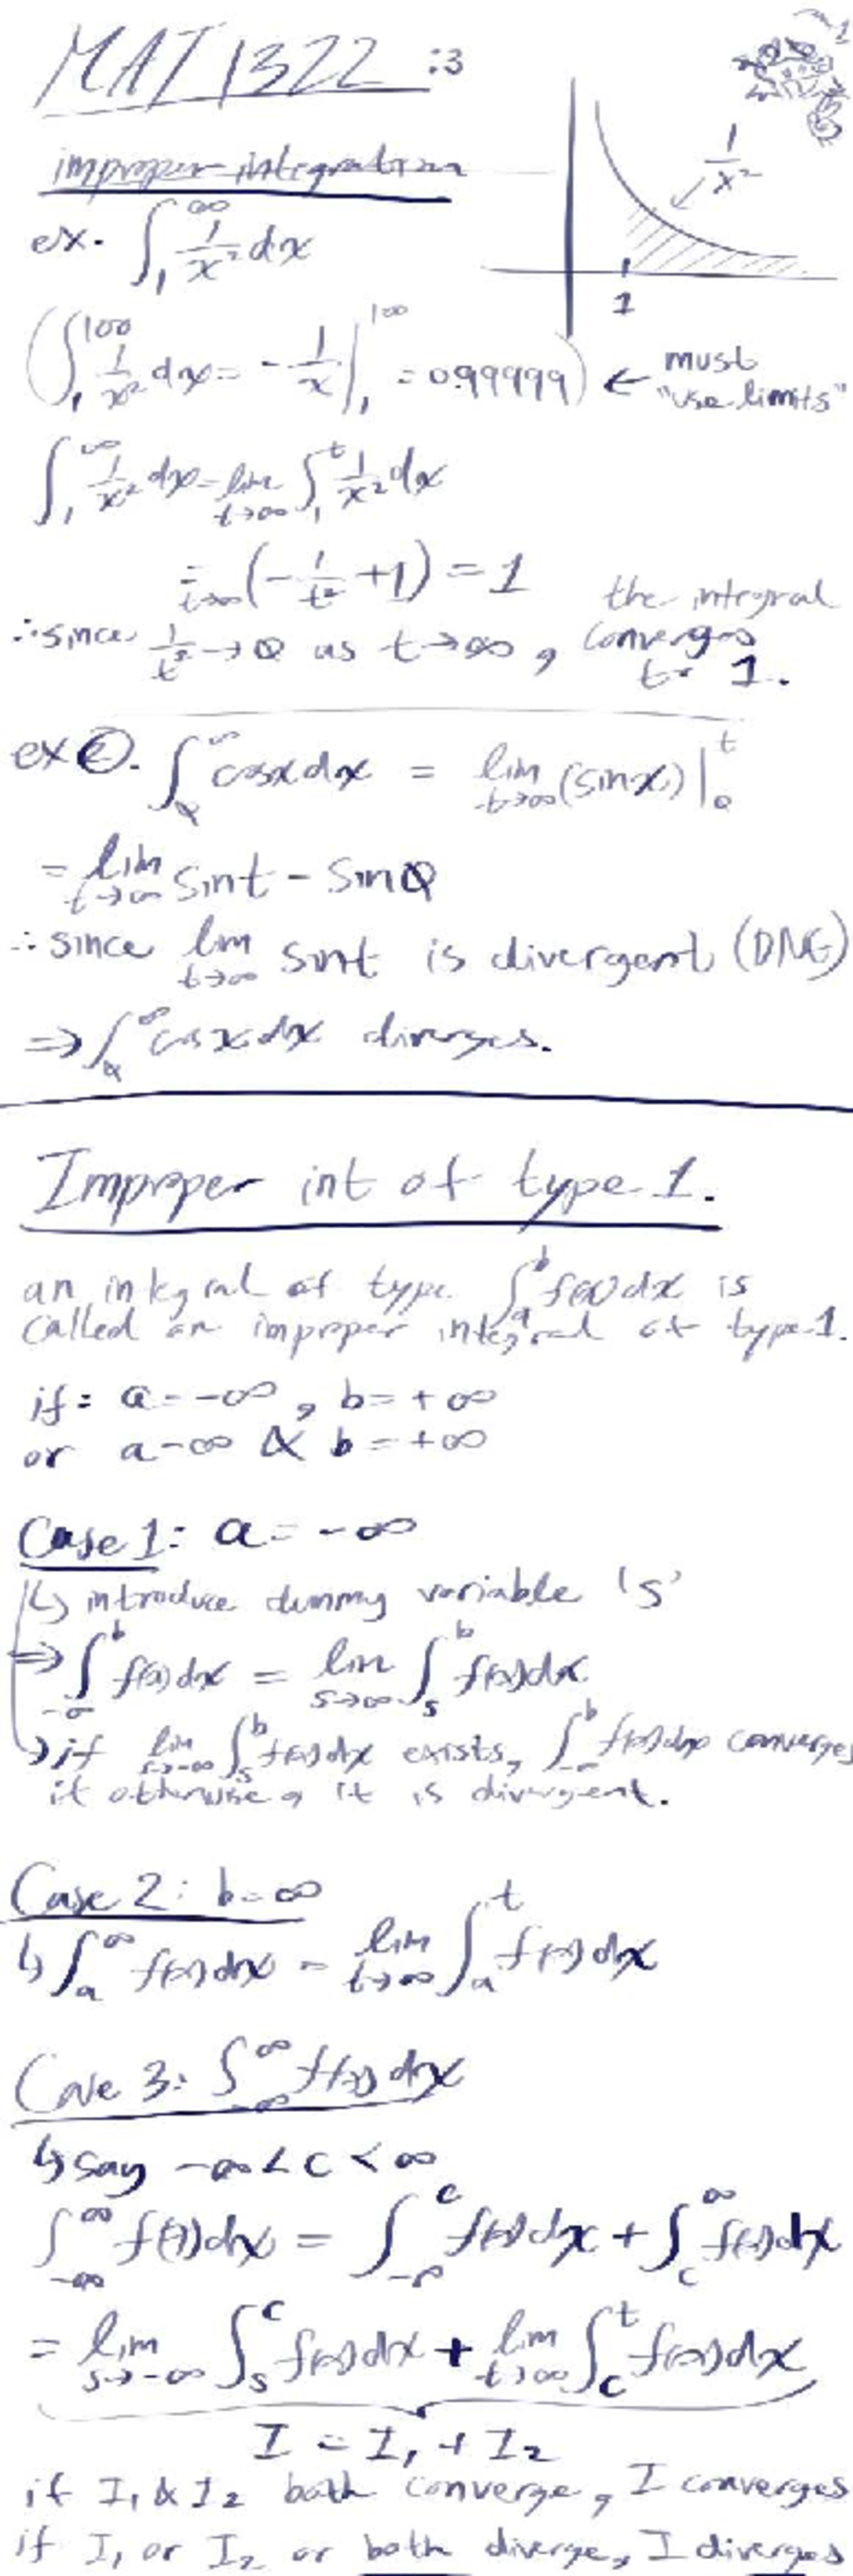 MAT 1322 :3
improper integration
1/x²
1
ex. ∫₁^∞ 1/x² dx
(∫₁^100 1/x² dx = -1/x |₁^100 = 0.99999) ← must "use limits"
∫₁^∞ 1/x² dx = lim t→∞ ∫₁^t 1/x² dx
= t→∞ (-1/t² + 1) = 1
∴ since 1/t² → 0 as t→∞, the integral converges to 1.
ex ②. ∫₀^∞ cosx dx = lim t→∞ (sinx)|₀^t
= lim t→∞ sint - sin0
∴ since lim t→∞ sint is divergent (DNE)
⇒ ∫₀^∞ cosx dx diverges.
Improper int of type 1.
an integral of type ∫ₐ^b f(x)dx is
called an improper integral of type 1.
if: a = -∞, b = +∞
or a -∞ & b = +∞
Case 1: a = -∞
↳ introduce dummy variable 's'
⇒ ∫_-∞^b f(x)dx = lim s→∞ ∫ₛ^b f(x)dx
→ if lim s→-∞ ∫ₛ^b f(x)dx exists, ∫_-∞^b f(x)dx converges
if otherwise, it is divergent.
Case 2: b = ∞
↳ ∫ₐ^∞ f(x)dx = lim t→∞ ∫ₐ^t f(x)dx
Case 3: ∫_-∞^∞ f(x)dx
↳ say -∞ < c < ∞
∫_-∞^∞ f(x)dx = ∫_-∞^c f(x)dx + ∫_c^∞ f(x)dx
= lim s→-∞ ∫ₛ^c f(x)dx + lim t→∞ ∫_c^t f(x)dx
I = I₁ + I₂
if I₁ & I₂ both converge, I converges
if I₁ or I₂ or both diverge, I diverges